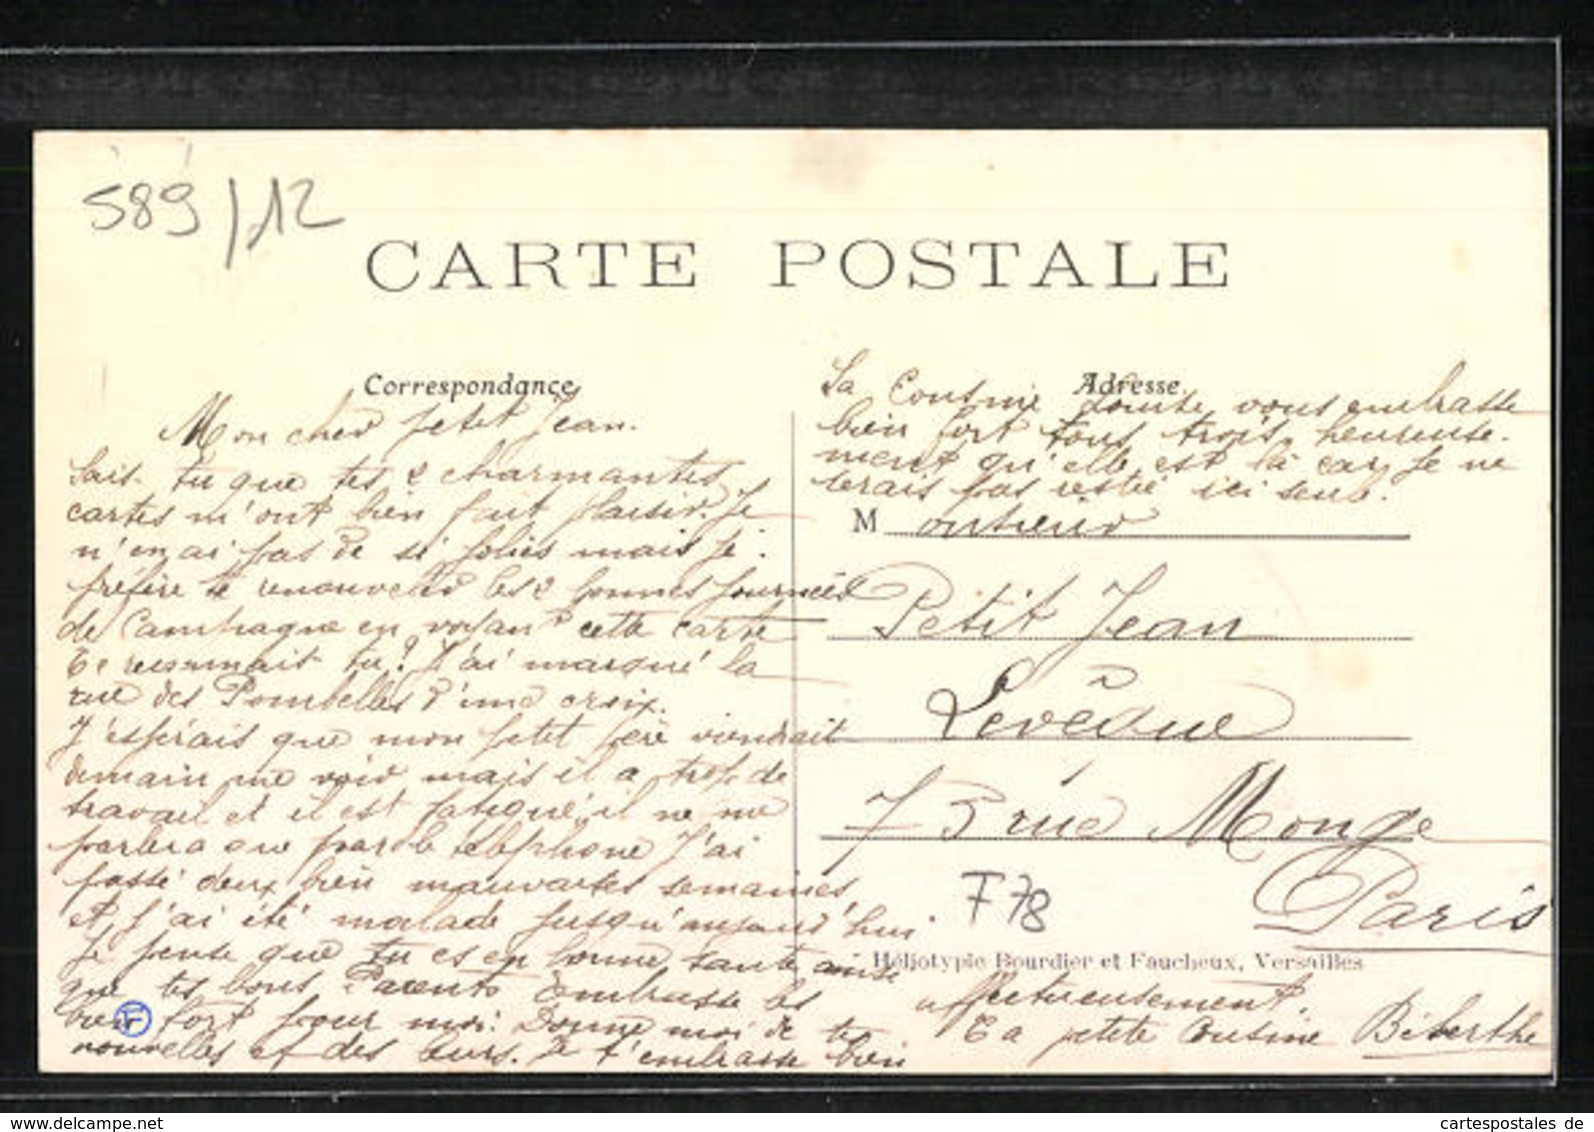 589/12
CARTE POSTALE
Correspondance
Mon cher petit Jean.
Sais-tu que tes 2 charmantes
cartes m'ont bien fait plaisir. Je
n'en ai pas de si jolies mais je
préfère te renouveler les 2 bonnes journées
de Campagne en voyant cette carte
Te reconnait tu? J'ai marqué la
rue des Pombelles d'une croix.
J'espérais que mon petit père viendrait
demain me voir mais il a trop de
travail et il est fatigué, il ne me
parlera que par le téléphone J'ai
passé deux bien mauvaises semaines,
et j'ai été malade jusqu'aujourd'hui
Je pense que tu es en bonne santé ainsi
que tes bons Parents embrasse les
bien fort pour moi. Donne moi de tes
nouvelles et des leurs. Je t'embrasse bien
affectueusement.
Ta petite Cousine Biberthe
Adresse
Ta Cousine Louise vous embrasse
bien fort tous trois, heureuse-
ment qu'elle est là car je ne
serais pas resté ici seule.
Monsieur
Petit Jean
Levêque
73 rue Monge
Paris
F78
Héliotypie Bourdier et Faucheux, Versailles
F
www.delcampe.net
cartespostales de